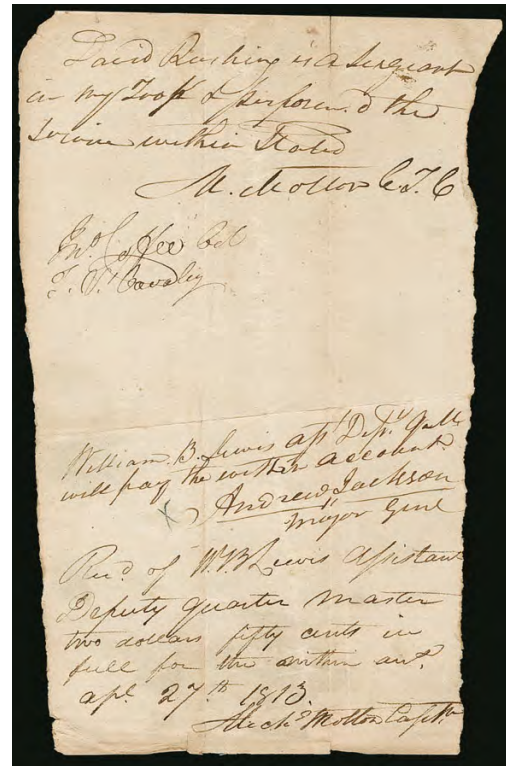 David Rushing is a Sergeant
in my Troop & perform.d the
Service within Stated
M. Molton C.T.C
Jno Coffee Col
T. V. Cavalry
William. B. Lewis asst Depy. Qr Mr
will pay the within account.
Andrew Jackson
Major Genl
Recd. of W. B Lewis assistant
Deputy quarter master
two dollars fifty cents in
full for the within acct.
apl. 27th 1813.
Molton Capt.